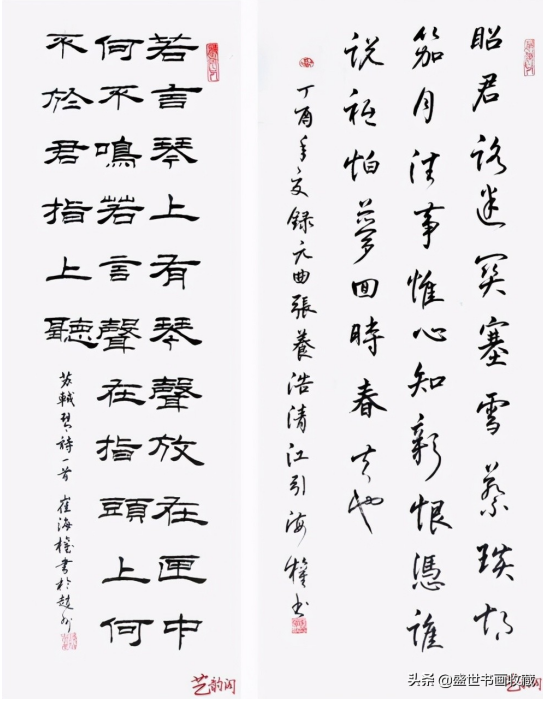 昭君路迷関塞雪蔡琰胡
笳月往事惟心知新恨憑誰
说秖怕夢回時春去也
丁酉年夏録元曲張養浩清江引海權书
若言琴上有琴聲放在匣中
何不鳴若言聲在指頭上何
不於君指上聽
苏軾琴詩一首 崔海權書於趙州
艺韵阁
头条 @盛世书画收藏